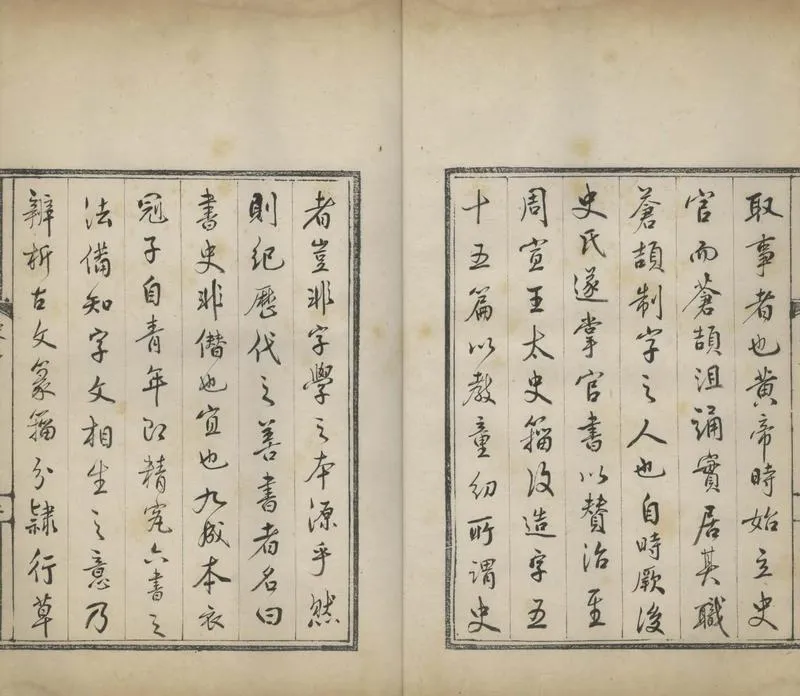 取事者也黄帝時始立史
官而蒼頡沮誦實居其職
蒼頡制字之人也自時厥後
史氏遂掌官書以賛治至
周宣王太史籀改造字五
十五篇以教童幼所謂史
者豈非字學之本源乎然
則紀歷代之善書者名曰
書史非僭也宜也九成本衣
冠子自青年即精究六書之
法備知字文相生之意乃
辨析古文篆籀分隸行草